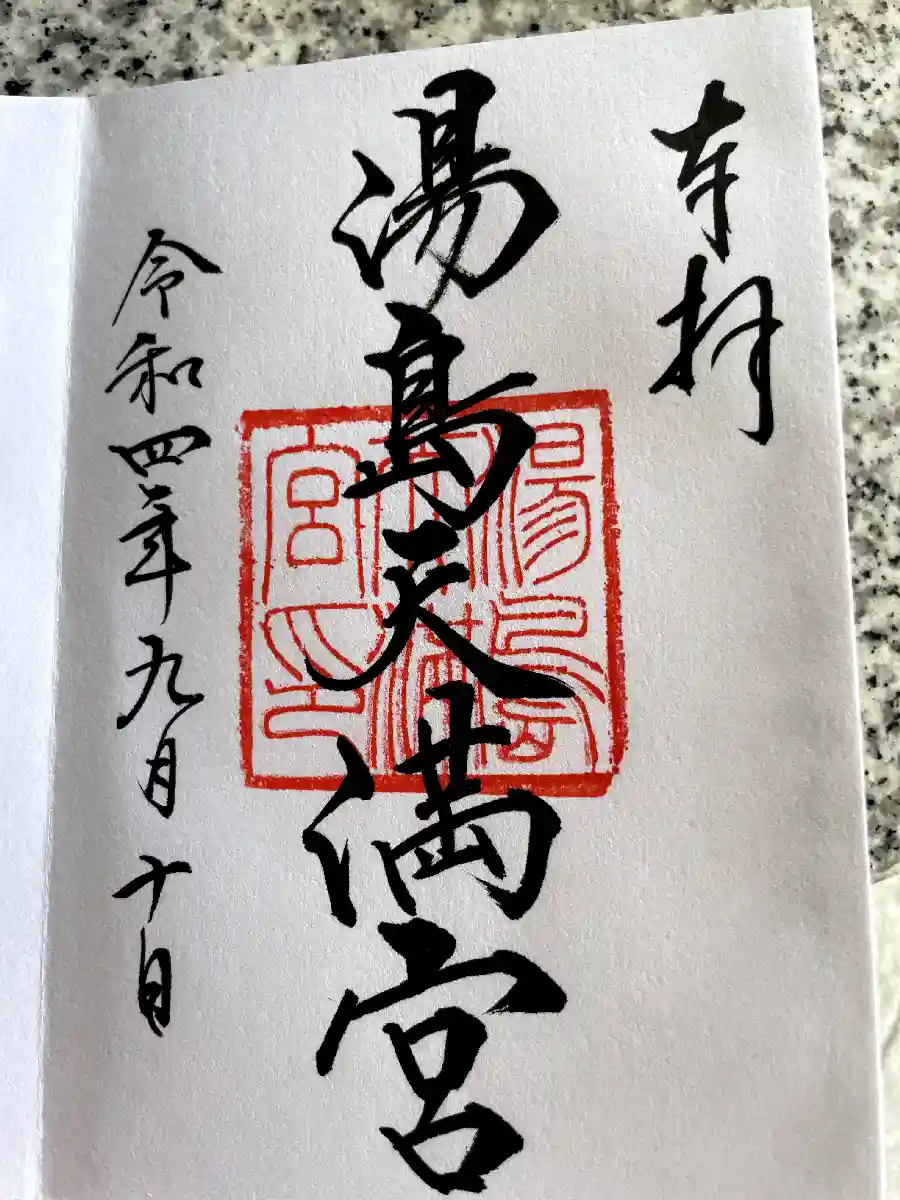 奉拝
湯島天満宮
令和四年九月十日
湯島
天満
宮印